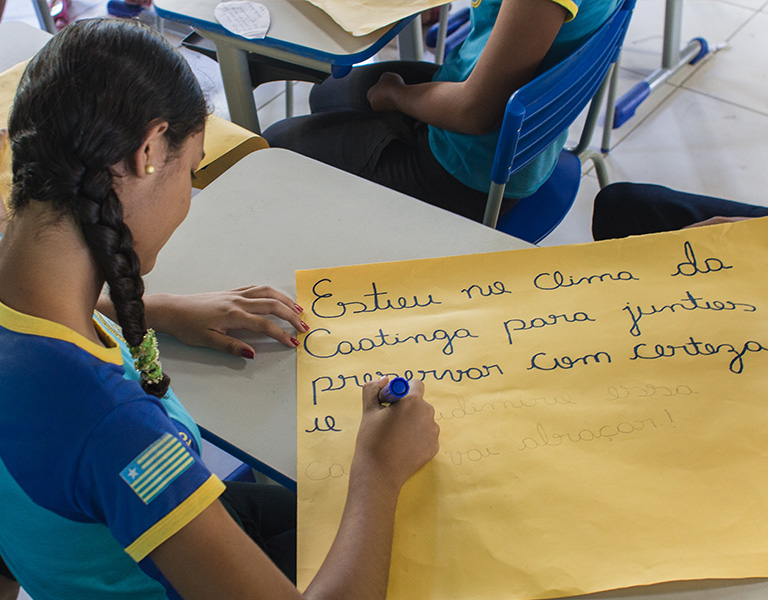 Estou no clima da
Caatinga para juntos
preservar com certeza
e essa
vai abraçar!